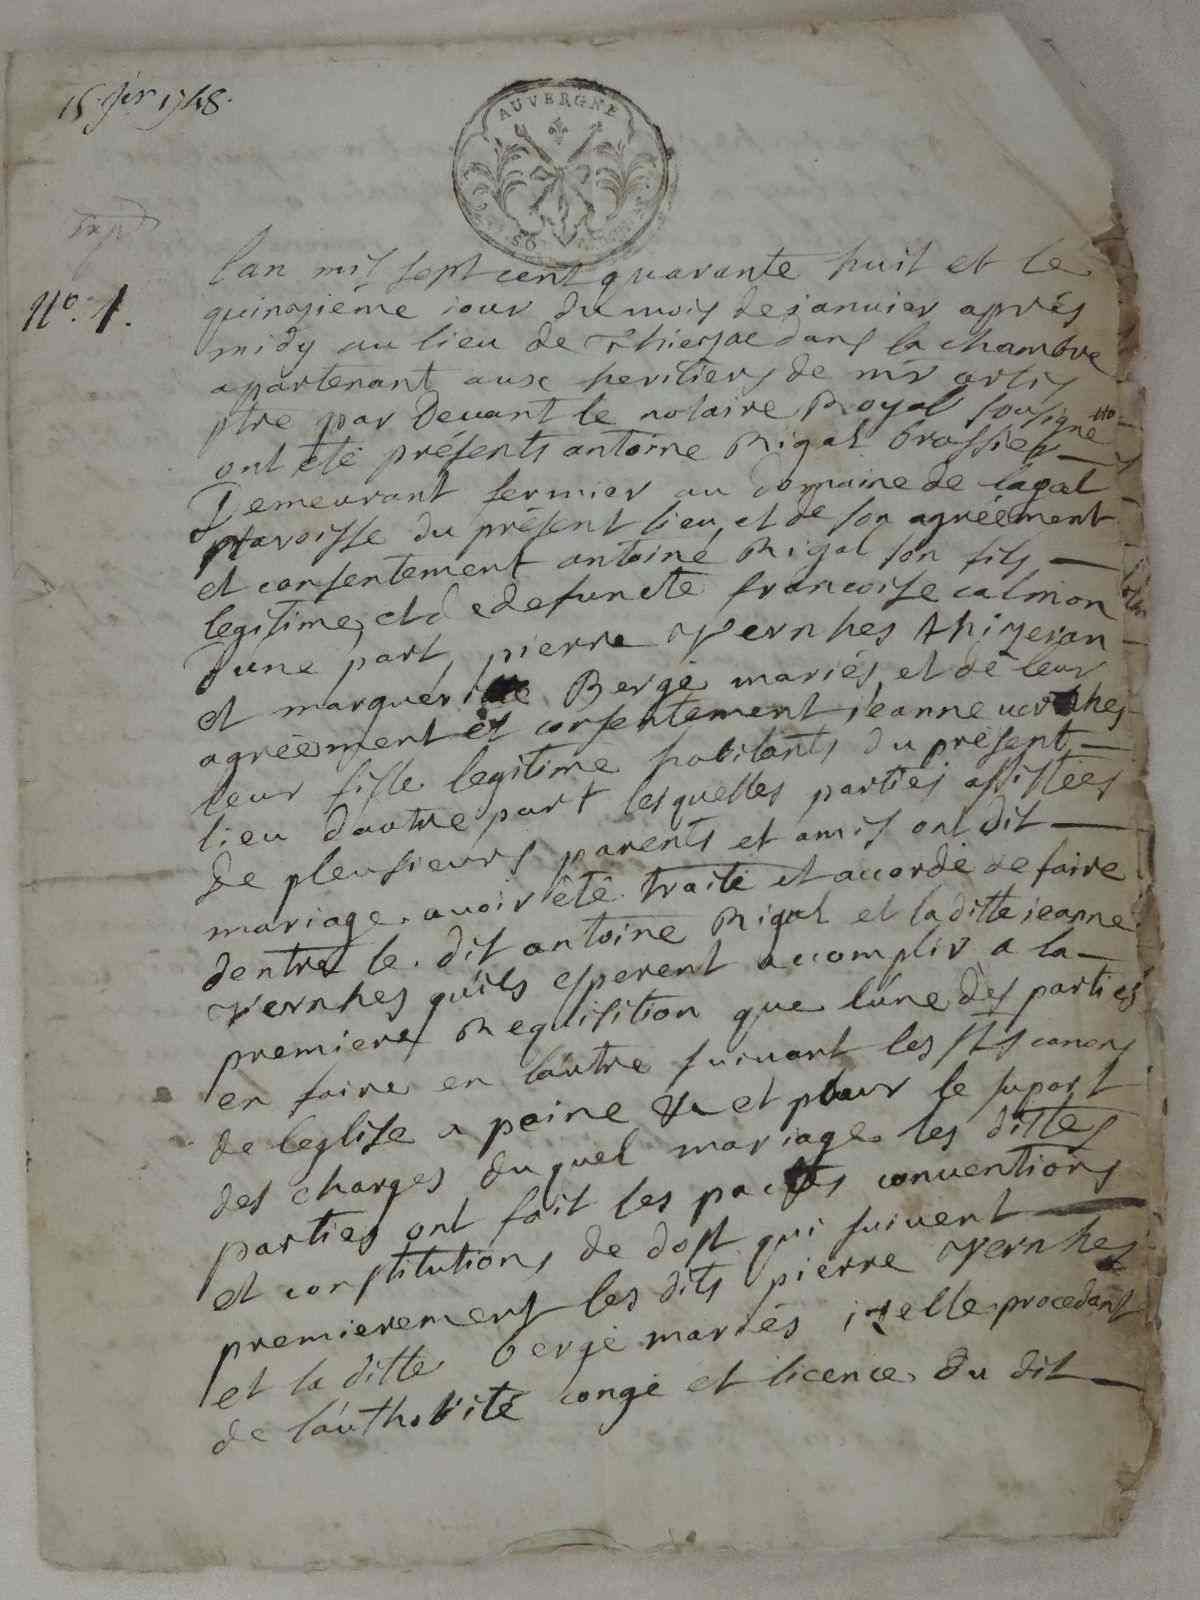 15 jer 1748.
AUVERGNE
exp
No. 1.
lan mil sept cent quarante huit et le
quinsieme iour du mois de janvier aprés
midy au lieu de Thiezac dans la chambre
apartenant aux heritiers de mr artis
ptre par Devant le notaire Royal sousigné
ont été présents antoine Rigal brassier
Demeurant fermier au domaine de
paroisse du présent lieu et de son agréement
et consentement antoine Rigal son fils
legitime et de defuncte francoise calmon
dune part, pierre Vernhes
et marguerite Bergé mariés et de leur
agréement et consentement ieanne vernhes
leur fille legitime habitants du présent
lieu dautre part lesquelles parties assistées
de pleusieurs parents et amis ont dit
mariage avoir été traité et accordé de faire
dentre le dit antoine Rigal et la ditte ieanne
Vernhes quils esperent accomplir a la
premiere Requisition que lúne des parties
en faire en laútre suivant les sts canons
de leglise a peine &c et pour le suport
des charges duquel mariage les dittes
parties ont fait les pactes conventions
et constitutions de dost qui suivent
premierement les dits pierre Vernhes
et la ditte bergé mariés icelle procedant
de laúthorité congé et licence du dit